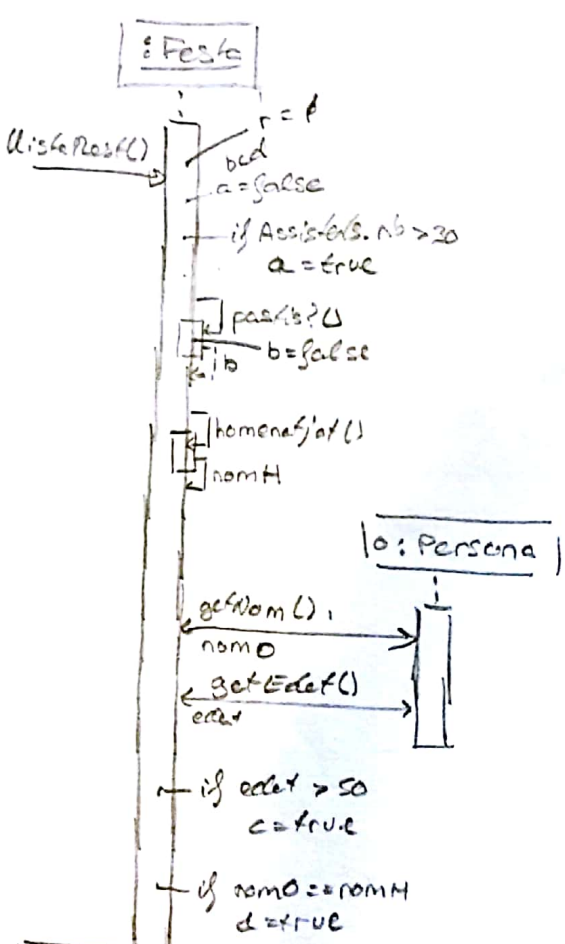 : Festa
llistaRest()
r = ∅
bcd
a = false
if Assistents.nb > 30
a = true
b = false
b
homenatjat()
nomH
o : Persona
getNom()
nomO
getEdat()
edat
if edat > 50
c = true
if nomO == nomH
d = true